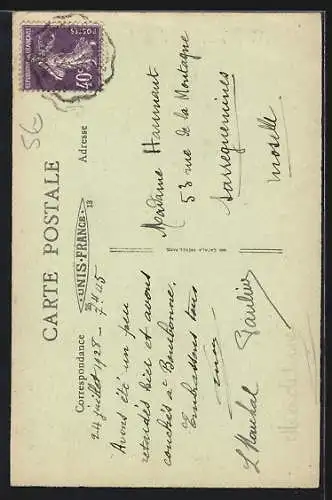 CARTE POSTALE
UNIS-FRANCE
25
13
Correspondance
Adresse
24 juillet 1928 - 7h45
Avons été un peu
retardés hier et avons
couchés à Bourbonne.
Embrassons tous
Pauline
Madame
53 rue de la Montagne
Sarreguemines
Moselle
POSTES
40c
56